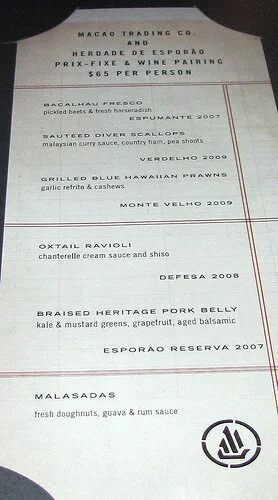 MACAO TRADING CO.
AND
HERDADE DE ESPORÃO
PRIX-FIXE & WINE PAIRING
$65 PER PERSON
BACALHAU FRESCO
pickled beets & fresh horseradish
ESPUMANTE 2007
SAUTEED DIVER SCALLOPS
malaysian curry sauce, country ham, pea shoots
VERDELHO 2009
GRILLED BLUE HAWAIIAN PRAWNS
garlic refrito & cashews
MONTE VELHO 2009
OXTAIL RAVIOLI
chanterelle cream sauce and shiso
DEFESA 2008
BRAISED HERITAGE PORK BELLY
kale & mustard greens, grapefruit, aged balsamic
ESPORÃO RESERVA 2007
MALASADAS
fresh doughnuts, guava & rum sauce